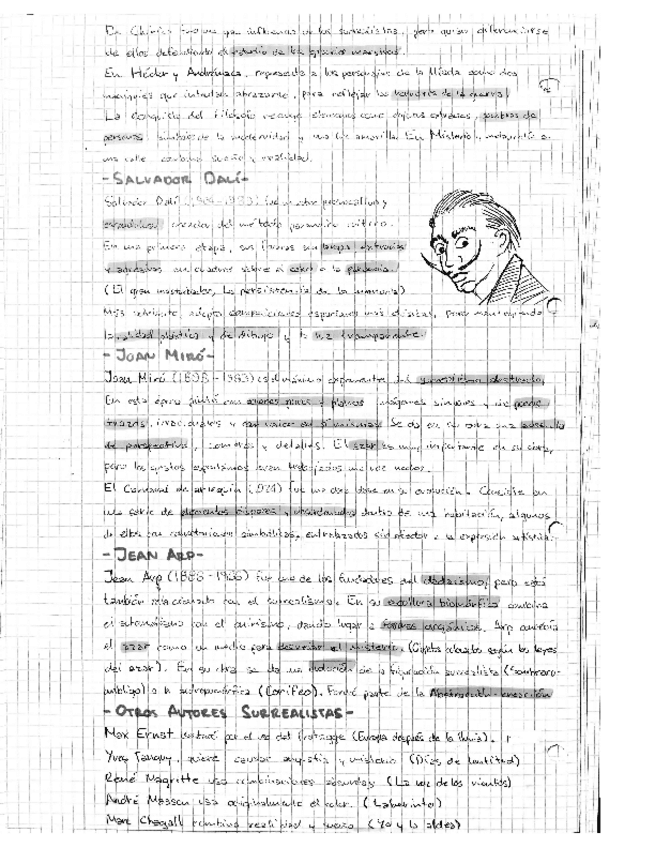 De Chirico tuvo una gran influencia en los surrealistas, pero quiso diferenciarse
de ellos defendiendo el estudio de los grandes maestros.
En Héctor y Andrómaca, representa a los personajes de la Ilíada como dos
maniquíes que intentan abrazarse, para reflejar los horrores de la guerra.
La conquista del filósofo recoge elementos como objetos extraños, sombras de
personas, símbolos de la modernidad y una luz amarilla. En Misterio,
una calle combina sueño y realidad.
-SALVADOR DALÍ-
Salvador Dalí (1904-1989) fue un autor provocativo y
creador del método paranoico crítico.
En una primera etapa, sus formas son
y agresivas sobre el o la paranoia.
(El gran masturbador, La persistencia de la memoria)
Más adelante, adopta composiciones pero manteniendo
la calidad plástica y de dibujo y la luz transparente.
-JOAN MIRÓ-
Joan Miró (1893-1983) es el máximo exponente del surrealismo abstracto.
En esta época pintó con colores puros y planos imágenes simples y de
trazos. Se da en su obra una ausencia
de perspectiva, sombras y detalles. El azar es muy importante en su obra,
pero los gestos espontáneos eran trabajados muchas veces.
El Carnaval de arlequín (1924) fue una obra clave en su evolución. Consiste en
una serie de elementos dispares y dentro de una habitación, algunos
de ellos con connotaciones simbólicas, entrelazados expresión artística.
-JEAN ARP-
Jean Arp (1886-1966) fue uno de los fundadores del dadaísmo, pero está
también relacionado con el surrealismo. En su escultura biomórfica combina
el automatismo con el dando lugar a formas orgánicas. Arp
el azar como un medio para descubrir el misterio. (Collages según las leyes
del azar). En su obra se da una de la figuración surrealista (Sombrero-
ombligo) a la antropomórfica (Corifeo). Formó parte de la Abstracción-creación
-OTROS AUTORES SURREALISTAS-
Max Ernst por el uso del frottage (Europa después de la lluvia).
Yves Tanguy, quiere causar angustia y misterio (Días de lentitud)
René Magritte usa combinaciones absurdas (La voz de los vientos)
André Masson usa originalmente el color. (Laberinto)
Marc Chagall combina realidad y sueño (Yo y la aldea)